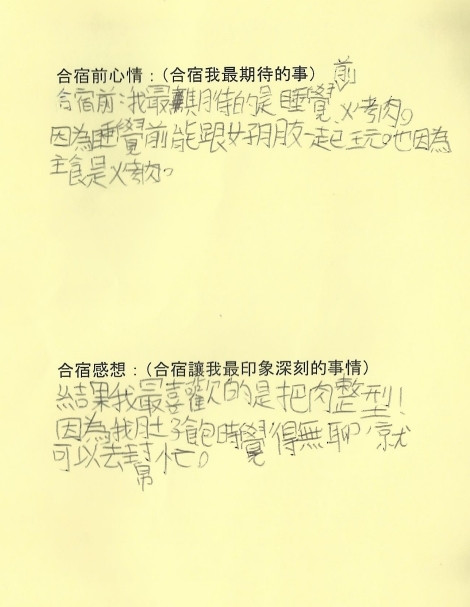 合宿前心情：(合宿我最期待的事)
合宿前：我最期待的是睡覺前、烤肉。
因為睡覺前能跟好朋友一起玩。也因為
主食是烤肉。
合宿感想：(合宿讓我最印象深刻的事情)
結果我最喜歡的是把肉整型！
因為我肚子飽時覺得無聊，就
可以去幫忙。